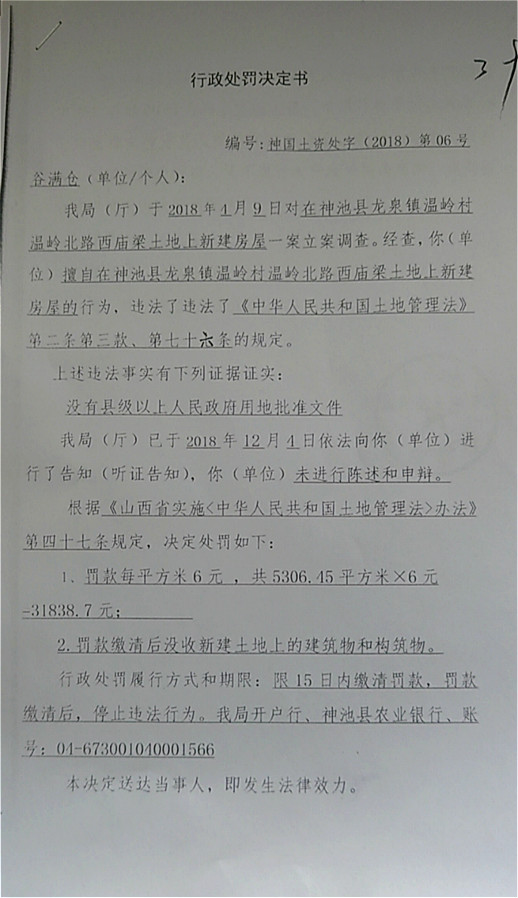 行政处罚决定书
编号:神国土资处字（2018）第06号
谷满仓（单位/个人）:
我局（厅）于2018年4月9日对在神池县龙泉镇温岭村
温岭北路西庙梁土地上新建房屋一案立案调查。经查，你（单
位）擅自在神池县龙泉镇温岭村温岭北路西庙梁土地上新建
房屋的行为，违法了违法了《中华人民共和国土地管理法》
第二条第三款、第七十六条的规定。
上述违法事实有下列证据证实:
没有县级以上人民政府用地批准文件
我局（厅）已于2018年12月4日依法向你（单位）进
行了告知（听证告知），你（单位）未进行陈述和申辩。
根据《山西省实施<中华人民共和国土地管理法>办法》
第四十七条规定，决定处罚如下:
1、罚款每平方米6元 ，共5306.45平方米×6元
-31838.7元;
2.罚款缴清后没收新建土地上的建筑物和构筑物。
行政处罚履行方式和期限: 限15日内缴清罚款，罚款
缴清后，停止违法行为。我局开户行、神池县农业银行、账
号: 04-673001040001566
本决定送达当事人，即发生法律效力。